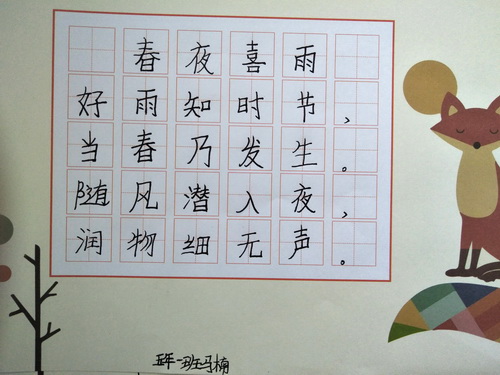 春夜喜雨
好雨知时节，
当春乃发生。
随风潜入夜，
润物细无声。
五年一班马楠